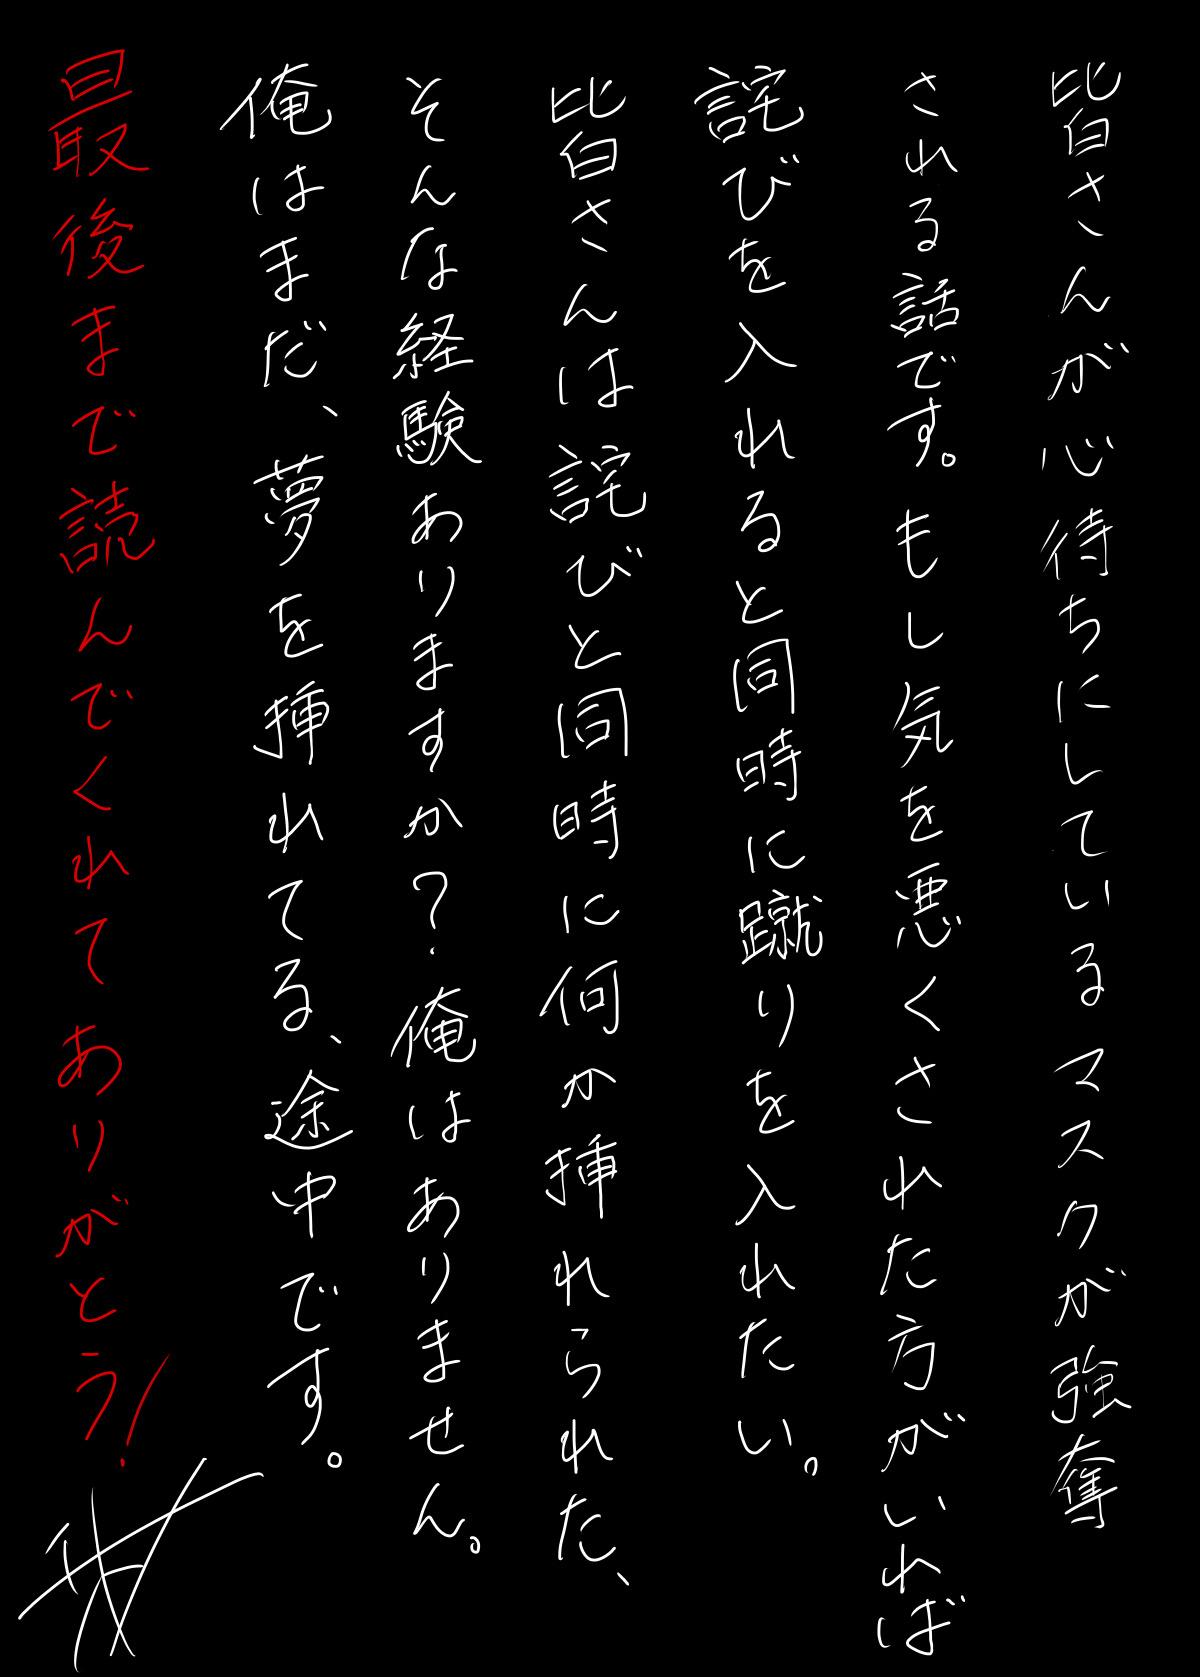 皆さんが心待ちにしているマスクが強奪
される話です。もし気を悪くされた方がいれば
詫びを入れると同時に蹴りを入れたい。
皆さんは詫びと同時に何か挿れられた、
そんな経験ありますか?俺はありません。
俺はまだ、夢を挿れてる、途中です。
最後まで読んでくれてありがとう!